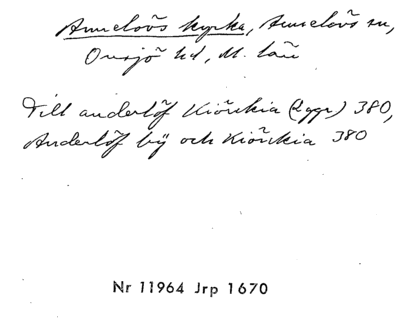 Annelövs kyrka, Annelövs sn,
Onsjö hd, M. län
Till anderlöf Kiörkia (2 ggr) 380,
Anderlöf bÿ och Kiörkia 380
Nr 11964 Jrp 1670